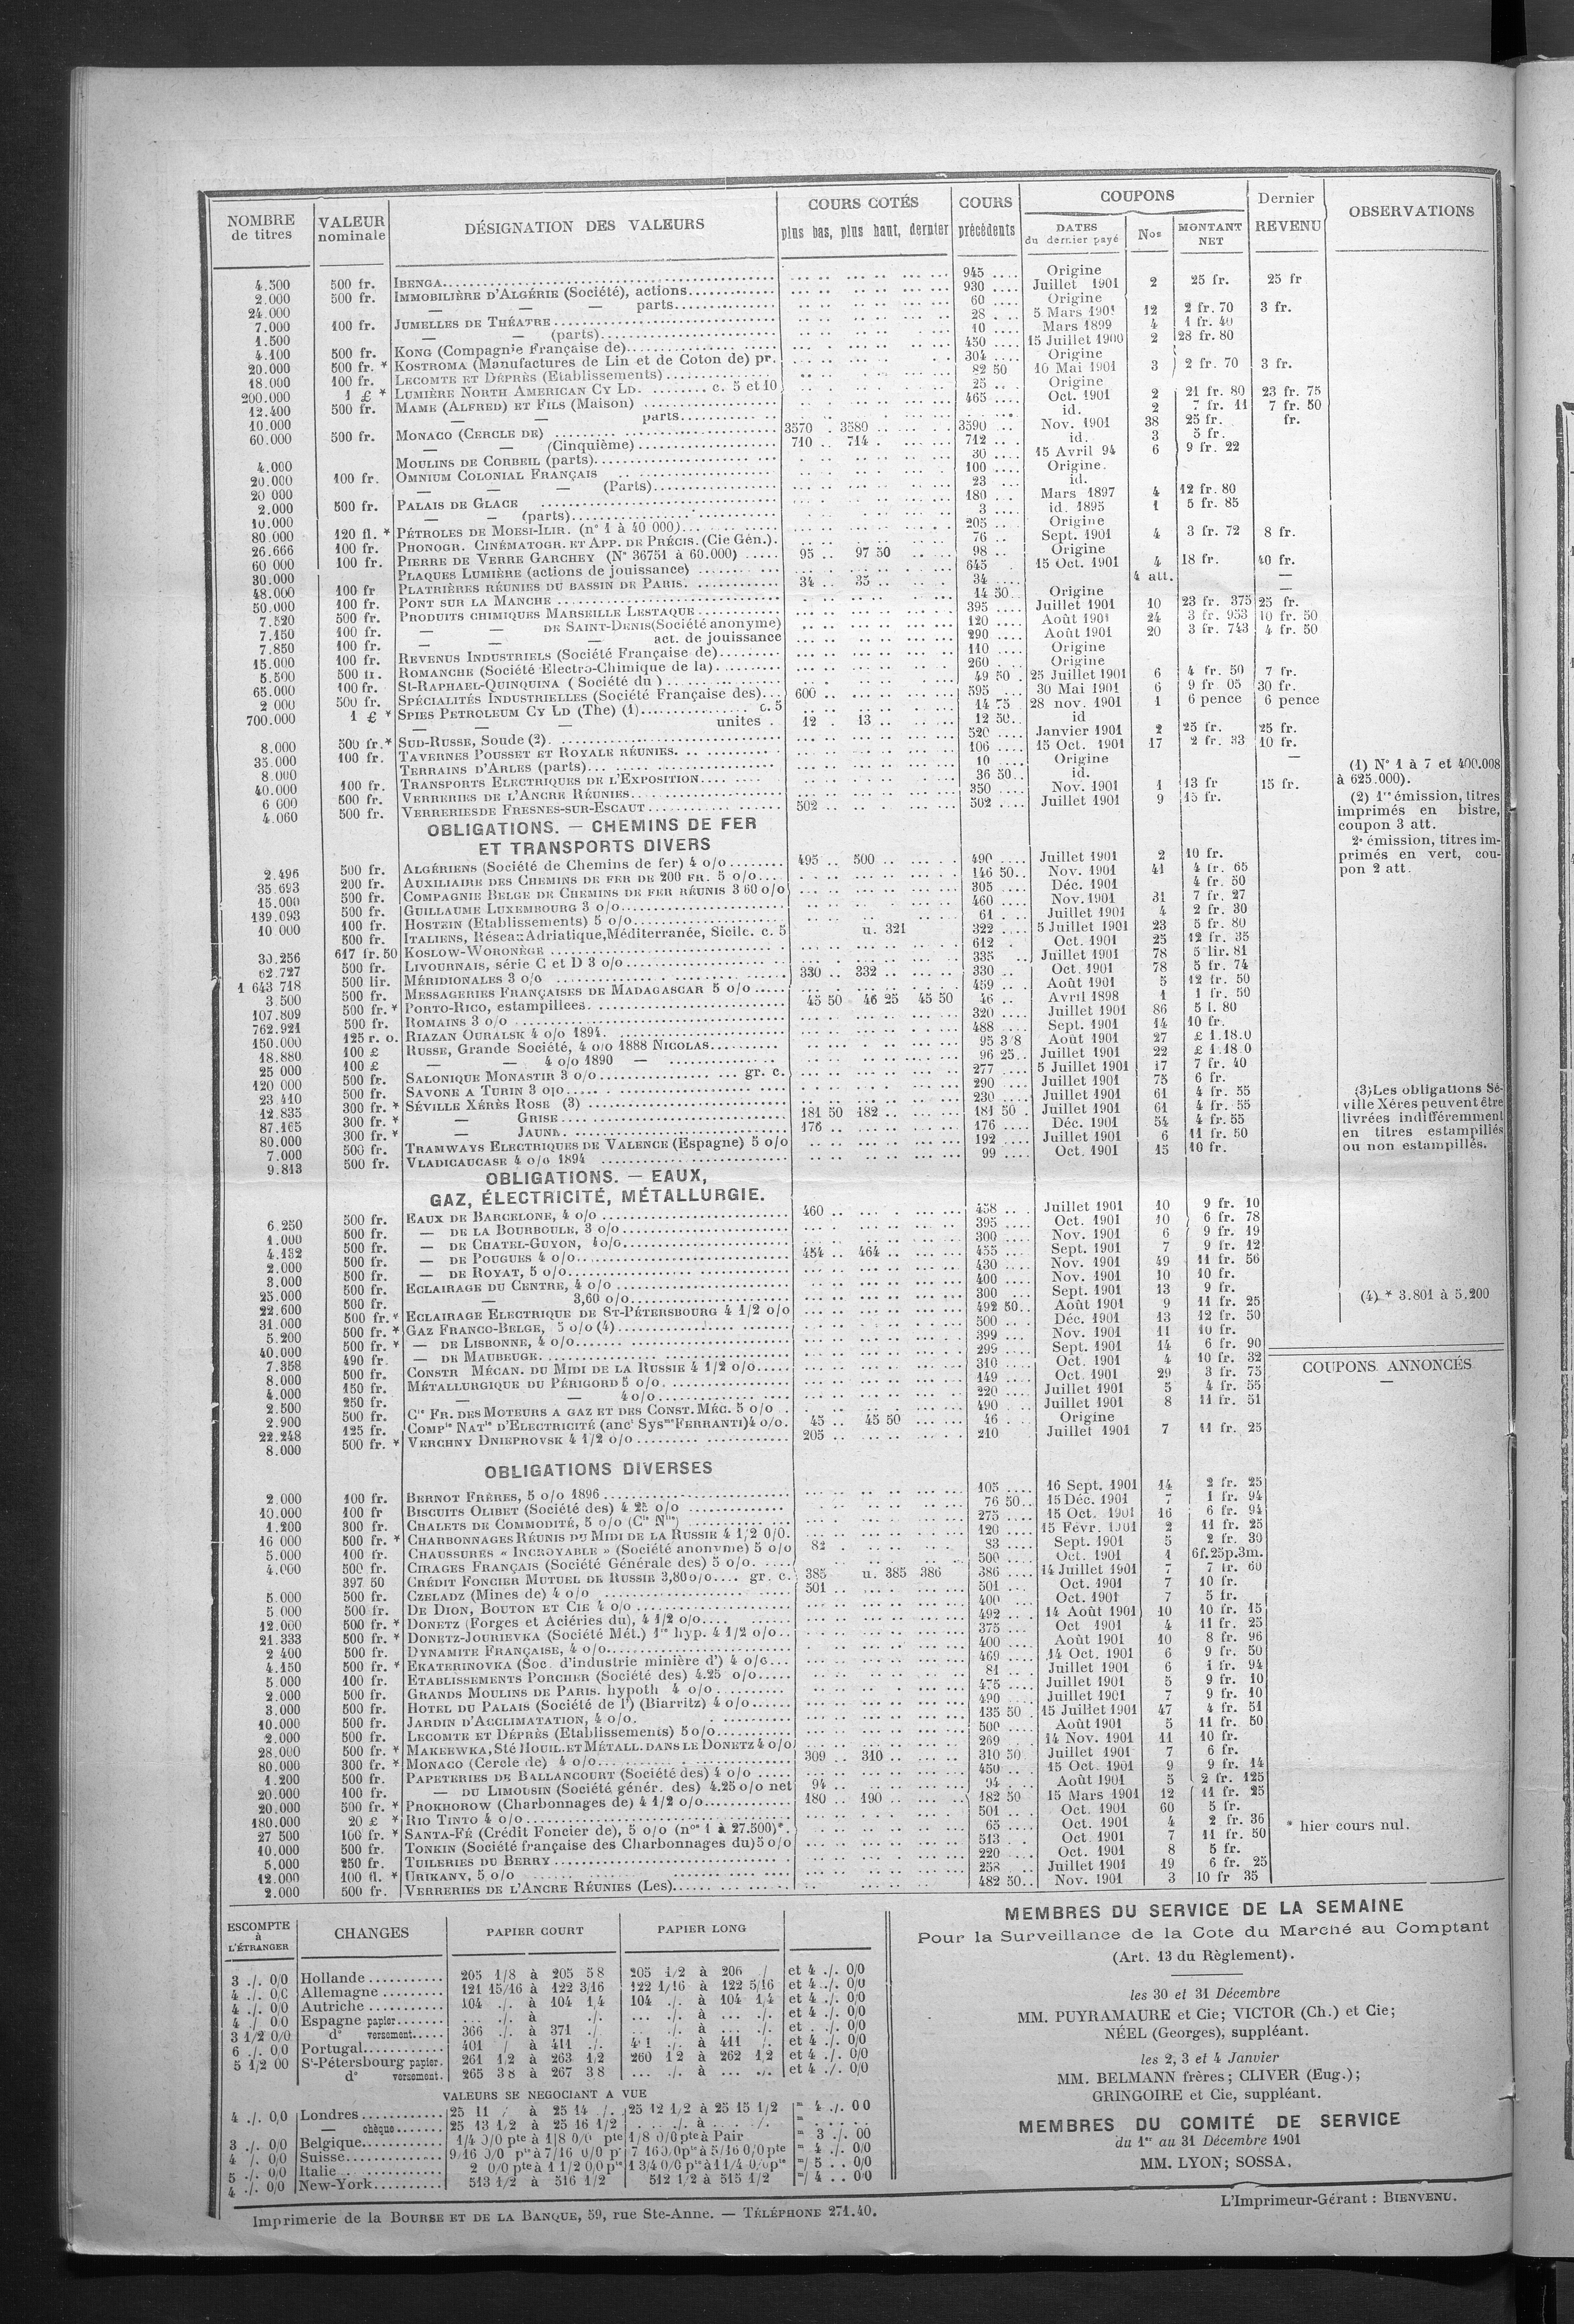 NOMBRE de titres | VALEUR nominale | DÉSIGNATION DES VALEURS | COURS COTÉS plus bas, plus haut, dernier | COURS précédents | COUPONS DATES du dernier payé | Nos | MONTANT NET | Dernier REVENU | OBSERVATIONS
4.500 500 fr. IBENGA 945 Origine
2.000 500 fr. IMMOBILIÈRE D'ALGÉRIE (Société), actions 930 Juillet 1901 2 25 fr. 25 fr
24.000 — — — parts 60 Origine
7.000 100 fr. JUMELLES DE THÉATRE 28 5 Mars 1901 12 2 fr. 70 3 fr.
1.500 — — (parts) 10 Mars 1899 4 1 fr. 40
4.100 500 fr. KONG (Compagnie Française de) 450 15 Juillet 1900 2 28 fr. 80
20.000 500 fr. * KOSTROMA (Manufactures de Lin et de Coton de) pr. 304 Origine
18.000 100 fr. LECOMTE ET DÉPRÈS (Etablissements) 82 50 10 Mai 1901 3 2 fr. 70 3 fr.
200.000 1 £ * LUMIÈRE NORTH AMERICAN CY LD. c. 5 et 10 25 Origine
12.400 500 fr. MAME (ALFRED) ET FILS (Maison) 465 Oct. 1901 2 21 fr. 80 23 fr. 75
10.000 — — parts id. 2 7 fr. 11 7 fr. 50
60.000 500 fr. MONACO (CERCLE DE) 3570 3580 3590 Nov. 1901 38 25 fr. fr.
— — (Cinquième) 710 714 712 id. 3 5 fr.
4.000 MOULINS DE CORBEIL (parts) 30 15 Avril 94 6 9 fr. 22
20.000 100 fr. OMNIUM COLONIAL FRANÇAIS 100 Origine.
20 000 — — — (Parts) 23 id.
2.000 500 fr. PALAIS DE GLACE 180 Mars 1897 4 12 fr. 80
10.000 — — (parts) 3 id. 1895 1 5 fr. 85
80.000 120 fl. * PÉTROLES DE MOESI-ILIR. (n° 1 à 40 000) 205 Origine
26.666 100 fr. PHONOGR. CINÉMATOGR. ET APP. DE PRÉCIS. (Cie Gén.) 76 Sept. 1901 4 3 fr. 72 8 fr.
60 000 100 fr. PIERRE DE VERRE GARCHEY (N° 36751 à 60.000) 95 97 50 98 Origine
30.000 PLAQUES LUMIÈRE (actions de jouissance) 645 15 Oct. 1901 4 18 fr. 40 fr.
48.000 100 fr PLATRIÈRES RÉUNIES DU BASSIN DE PARIS. 34 35 34 4 att. —
50.000 100 fr. PONT SUR LA MANCHE 14 50 Origine —
7.520 500 fr. PRODUITS CHIMIQUES MARSEILLE LESTAQUE 395 Juillet 1901 10 23 fr. 375 25 fr.
7.150 100 fr. — — DE SAINT-DENIS (Société anonyme) 120 Août 1901 24 3 fr. 953 10 fr. 50
7.850 100 fr. — — — act. de jouissance 290 Août 1901 20 3 fr. 743 4 fr. 50
15.000 100 fr. REVENUS INDUSTRIELS (Société Française de) 110 Origine
5.500 500 fr. ROMANCHE (Société Electro-Chimique de la) 260 Origine
65.000 100 fr. St-RAPHAEL-QUINQUINA (Société du) 49 50 25 Juillet 1901 6 4 fr. 50 7 fr.
2 000 500 fr. SPÉCIALITÉS INDUSTRIELLES (Société Française des) 600 595 30 Mai 1901 6 9 fr 05 30 fr.
700.000 1 £ * SPIES PETROLEUM CY LD (The) (1) c. 5 14 75 28 nov. 1901 1 6 pence 6 pence
— — — unites 12 13 12 50 id
8.000 500 fr. * SUD-RUSSE, Soude (2) 520 Janvier 1901 2 25 fr. 25 fr.
35.000 100 fr. TAVERNES POUSSET ET ROYALE RÉUNIES. 106 15 Oct. 1901 17 2 fr. 33 10 fr.
8.000 TERRAINS D'ARLES (parts) 10 Origine —
40.000 100 fr. TRANSPORTS ELECTRIQUES DE L'EXPOSITION 36 50 id.
6 000 500 fr. VERRERIES DE L'ANCRE RÉUNIES 350 Nov. 1901 1 13 fr 15 fr.
4.060 500 fr. VERRERIES DE FRESNES-SUR-ESCAUT 502 502 Juillet 1901 9 15 fr.
(1) N° 1 à 7 et 400.008
à 625.000).
(2) 1re émission, titres
imprimés en bistre,
coupon 3 att.
2e émission, titres im-
primés en vert, cou-
pon 2 att.
OBLIGATIONS. — CHEMINS DE FER
ET TRANSPORTS DIVERS
2.496 500 fr. ALGÉRIENS (Société de Chemins de fer) 4 o/o 495 500 490 Juillet 1901 2 10 fr.
35.693 200 fr. AUXILIAIRE DES CHEMINS DE FER DE 200 FR. 5 o/o 146 50 Nov. 1901 41 4 fr. 65
15.000 500 fr. COMPAGNIE BELGE DE CHEMINS DE FER RÉUNIS 3 60 o/o 305 Déc. 1901 4 fr. 50
139.093 500 fr. GUILLAUME LUXEMBOURG 3 o/o 460 Nov. 1901 31 7 fr. 27
10 000 100 fr. HOSTEIN (Etablissements) 5 o/o 61 Juillet 1901 4 2 fr. 30
500 fr. ITALIENS, Réseau Adriatique, Méditerranée, Sicile. c. 5 u. 321 322 5 Juillet 1901 23 5 fr. 80
30.256 617 fr. 50 KOSLOW-WORONÈGE 612 Oct. 1901 25 12 fr. 35
62.727 500 fr. LIVOURNAIS, série C et D 3 o/o 335 Juillet 1901 78 5 lir. 81
1 643 718 500 lir. MÉRIDIONALES 3 o/o 330 332 330 Oct. 1901 78 5 fr. 74
3.500 500 fr. MESSAGERIES FRANÇAISES DE MADAGASCAR 5 o/o 459 Août 1901 5 12 fr. 50
107.809 500 fr. * PORTO-RICO, estampillees 45 50 46 25 45 50 46 Avril 1898 1 1 fr. 50
762.921 500 fr. ROMAINS 3 o/o 320 Juillet 1901 86 5 l. 80
150.000 125 r. o. RIAZAN OURALSK 4 o/o 1894. 488 Sept. 1901 14 10 fr.
18.880 100 £ RUSSE, Grande Société, 4 o/o 1888 NICOLAS 95 3/8 Août 1901 27 £ 1.18.0
25 000 100 £ — — 4 o/o 1890 — 96 25 Juillet 1901 22 £ 1.18.0
120 000 500 fr. SALONIQUE MONASTIR 3 o/o gr. c. 277 5 Juillet 1901 17 7 fr. 40
23 410 500 fr. SAVONE A TURIN 3 o/o 290 Juillet 1901 75 6 fr.
12.835 300 fr. * SÉVILLE XÉRÈS ROSE (3) 230 Juillet 1901 61 4 fr. 55
87.165 300 fr. * — GRISE 181 50 182 181 50 Juillet 1901 61 4 fr. 55
80.000 300 fr. * — JAUNE. 176 176 Déc. 1901 54 4 fr. 55
7.000 500 fr. TRAMWAYS ELECTRIQUES DE VALENCE (Espagne) 5 o/o 192 Juillet 1901 6 11 fr. 50
9.813 500 fr. VLADICAUCASE 4 o/o 1894 99 Oct. 1901 15 10 fr.
(3) Les obligations Sé-
ville Xéres peuvent être
livrées indifféremment
en titres estampillés
ou non estampillés.
OBLIGATIONS. — EAUX,
GAZ, ÉLECTRICITÉ, MÉTALLURGIE.
6.250 500 fr. EAUX DE BARCELONE, 4 o/o 460 458 Juillet 1901 10 9 fr. 10
1.000 500 fr. — DE LA BOURBOULE, 3 o/o 395 Oct. 1901 10 6 fr. 78
4.132 500 fr. — DE CHATEL-GUYON, 4 o/o 300 Nov. 1901 6 9 fr. 19
2.000 500 fr. — DE POUGUES 4 o/o 454 464 455 Sept. 1901 7 9 fr. 12
3.000 500 fr. — DE ROYAT, 5 o/o 430 Nov. 1901 49 11 fr. 56
25.000 500 fr. ECLAIRAGE DU CENTRE, 4 o/o 400 Nov. 1901 10 10 fr.
22.600 500 fr. — 3,60 o/o 300 Sept. 1901 13 9 fr.
31.000 500 fr. * ECLAIRAGE ELECTRIQUE DE ST-PÉTERSBOURG 4 1/2 o/o 492 50 Août 1901 9 11 fr. 25
5.200 500 fr. * GAZ FRANCO-BELGE, 5 o/o (4) 500 Déc. 1901 13 12 fr. 50
40.000 500 fr. * — DE LISBONNE, 4 o/o 399 Nov. 1901 11 10 fr.
7.358 490 fr. — DE MAUBEUGE. 299 Sept. 1901 14 6 fr. 90
8.000 500 fr. CONSTR MÉCAN. DU MIDI DE LA RUSSIE 4 1/2 o/o 310 Oct. 1901 4 10 fr. 32
4.000 150 fr. MÉTALLURGIQUE DU PÉRIGORD 5 o/o. 149 Oct. 1901 29 3 fr. 75
2.500 250 fr. — — 4 o/o 220 Juillet 1901 5 4 fr. 55
2.900 500 fr. Cie FR. DES MOTEURS A GAZ ET DES CONST. MÉC. 5 o/o 490 Juillet 1901 8 11 fr. 51
22.248 125 fr. COMPie NATle D'ELECTRICITÉ (anct Sysme FERRANTI) 4 o/o. 45 45 50 46 Origine
8.000 500 fr. * VERCHNY DNIEPROVSK 4 1/2 o/o 205 210 Juillet 1901 7 11 fr. 25
(4) * 3.801 à 5.200
COUPONS ANNONCÉS
OBLIGATIONS DIVERSES
2.000 100 fr. BERNOT FRÈRES, 5 o/o 1896 105 16 Sept. 1901 14 2 fr. 25
10.000 100 fr BISCUITS OLIBET (Société des) 4 25 o/o 76 50 15 Déc. 1901 7 1 fr. 94
1.200 300 fr. CHALETS DE COMMODITÉ, 5 o/o (Cie Nlle) 275 15 Oct. 1901 16 6 fr. 94
16 000 500 fr. * CHARBONNAGES RÉUNIS DU MIDI DE LA RUSSIE 4 1/2 0/0. 120 15 Févr. 1901 2 11 fr. 25
5.000 100 fr. CHAUSSURES « INCROYABLE » (Société anonyme) 5 o/o 82 83 Sept. 1901 5 2 fr. 30
4.000 500 fr. CIRAGES FRANÇAIS (Société Générale des) 5 o/o. 500 Oct. 1901 1 6f.25p.3m.
397 50 CRÉDIT FONCIER MUTUEL DE RUSSIE 3,80 o/o gr. c. 385 u. 385 386 386 14 Juillet 1901 7 7 fr. 60
5.000 500 fr. CZELADZ (Mines de) 4 o/o 501 501 Oct. 1901 7 10 fr.
5 000 500 fr. DE DION, BOUTON ET CIE 4 o/o 400 Oct. 1901 7 5 fr.
12.000 500 fr. * DONETZ (Forges et Aciéries du), 4 1/2 o/o 492 14 Août 1901 10 10 fr. 15
21.333 500 fr. * DONETZ-JOURIEVKA (Société Mét.) 1re hyp. 4 1/2 o/o 375 Oct 1901 4 11 fr. 25
2 400 500 fr. DYNAMITE FRANÇAISE, 4 o/o 400 Août 1901 10 8 fr. 96
4.150 500 fr. * EKATERINOVKA (Soc. d'industrie minière d') 4 o/o 469 14 Oct. 1901 6 9 fr. 50
5.000 100 fr. ETABLISSEMENTS PORCHER (Société des) 4.25 o/o 81 Juillet 1901 6 1 fr. 94
2.000 500 fr. GRANDS MOULINS DE PARIS. hypoth 4 o/o 475 Juillet 1901 5 9 fr. 10
3.000 500 fr. HOTEL DU PALAIS (Société de l') (Biarritz) 4 o/o 490 Juillet 1901 7 9 fr. 10
10.000 500 fr. JARDIN D'ACCLIMATATION, 4 o/o. 135 50 15 Juillet 1901 47 4 fr. 51
2.000 500 fr. LECOMTE ET DÉPRÈS (Etablissements) 5 o/o 500 Août 1901 5 11 fr. 50
28.000 500 fr. * MAKEEWKA, Sté HOUIL. ET MÉTALL. DANS LE DONETZ 4 o/o 269 14 Nov. 1901 11 10 fr.
80.000 300 fr. * MONACO (Cercle de) 4 o/o 309 310 310 50 Juillet 1901 7 6 fr.
1.200 500 fr. PAPETERIES DE BALLANCOURT (Société des) 4 o/o 450 15 Oct. 1901 9 9 fr. 14
20.000 100 fr. — DU LIMOUSIN (Société génér. des) 4.25 o/o net 94 94 Août 1901 5 2 fr. 125
20.000 500 fr. * PROKHOROW (Charbonnages de) 4 1/2 o/o 180 190 182 50 15 Mars 1901 12 11 fr. 25
180.000 20 £ * RIO TINTO 4 o/o 501 Oct. 1901 60 5 fr.
27 500 100 fr. * SANTA-FÉ (Crédit Foncier de), 5 o/o (nos 1 à 27.500)*. 65 Oct. 1901 4 2 fr. 36
10.000 500 fr. TONKIN (Société française des Charbonnages du) 5 o/o 513 Oct. 1901 7 11 fr. 50
5.000 250 fr. TUILERIES DU BERRY 220 Oct. 1901 8 5 fr.
12.000 100 fl. * URIKANY, 5 o/o 258 Juillet 1901 19 6 fr. 25
2.000 500 fr. VERRERIES DE L'ANCRE RÉUNIES (Les) 482 50 Nov. 1901 3 10 fr 35
* hier cours nul.
ESCOMPTE à L'ÉTRANGER | CHANGES | PAPIER COURT | PAPIER LONG
3 ./. 0/0 Hollande 205 1/8 à 205 5 8 205 1/2 à 206 / et 4 ./. 0/0
4 ./. 0/0 Allemagne 121 15/16 à 122 3/16 122 1/16 à 122 5/16 et 4 ./. 0/0
4 ./. 0/0 Autriche 104 ./. à 104 1/4 104 ./. à 104 1/4 et 4 ./. 0/0
4 / 0 0 Espagne papier ./. à ./. ./. à ./. et 4 ./. 0/0
3 1/2 0/0 d° versement 366 ./. à 371 ./. ./. à ./. et . /. 0/0
6 ./. 0/0 Portugal 401 / à 411 ./. 4 1 ./. à 411 / et 4 ./. 0/0
5 1/2 00 St-Pétersbourg papier. 261 1/2 à 263 1/2 260 1 2 à 262 1/2 et 4 ./. 0/0
d° versement. 265 3 8 à 267 3 8 ./. à ./. et 4 ./. 0/0
VALEURS SE NEGOCIANT A VUE
4 ./. 0/0 Londres 25 11 / à 25 14 /. 25 12 1/2 à 25 15 1/2 = 4 ./. 0 0
— chèque 25 13 1/2 à 25 16 1/2
3 ./. 0/0 Belgique 1/4 0/0 pte à 1/8 0/0 pte 1/8 0/0 pte à Pair = 3 ./. 00
4 /. 0/0 Suisse 9/16 0/0 pte à 7/16 0/0 pte 7 16 0/0 pte à 5/16 0/0 pte = 4 ./. 0/0
5 ./. 0/0 Italie 2 0/0 pte à 1 1/2 0/0 pte 1 3/4 0/0 pte à 1 1/4 0/0 pte = 5 . . 0/0
4 ./. 0/0 New-York 513 1/2 à 516 1/2 512 1/2 à 515 1/2 = 4 . . 0/0
MEMBRES DU SERVICE DE LA SEMAINE
Pour la Surveillance de la Cote du Marché au Comptant
(Art. 13 du Règlement).
les 30 et 31 Décembre
MM. PUYRAMAURE et Cie; VICTOR (Ch.) et Cie;
NÉEL (Georges), suppléant.
les 2, 3 et 4 Janvier
MM. BELMANN frères; CLIVER (Eug.);
GRINGOIRE et Cie, suppléant.
MEMBRES DU COMITÉ DE SERVICE
du 1er au 31 Décembre 1901
MM. LYON; SOSSA.
Imprimerie de la BOURSE ET DE LA BANQUE, 59, rue Ste-Anne. — TÉLÉPHONE 271.40.
L'Imprimeur-Gérant : BIENVENU.